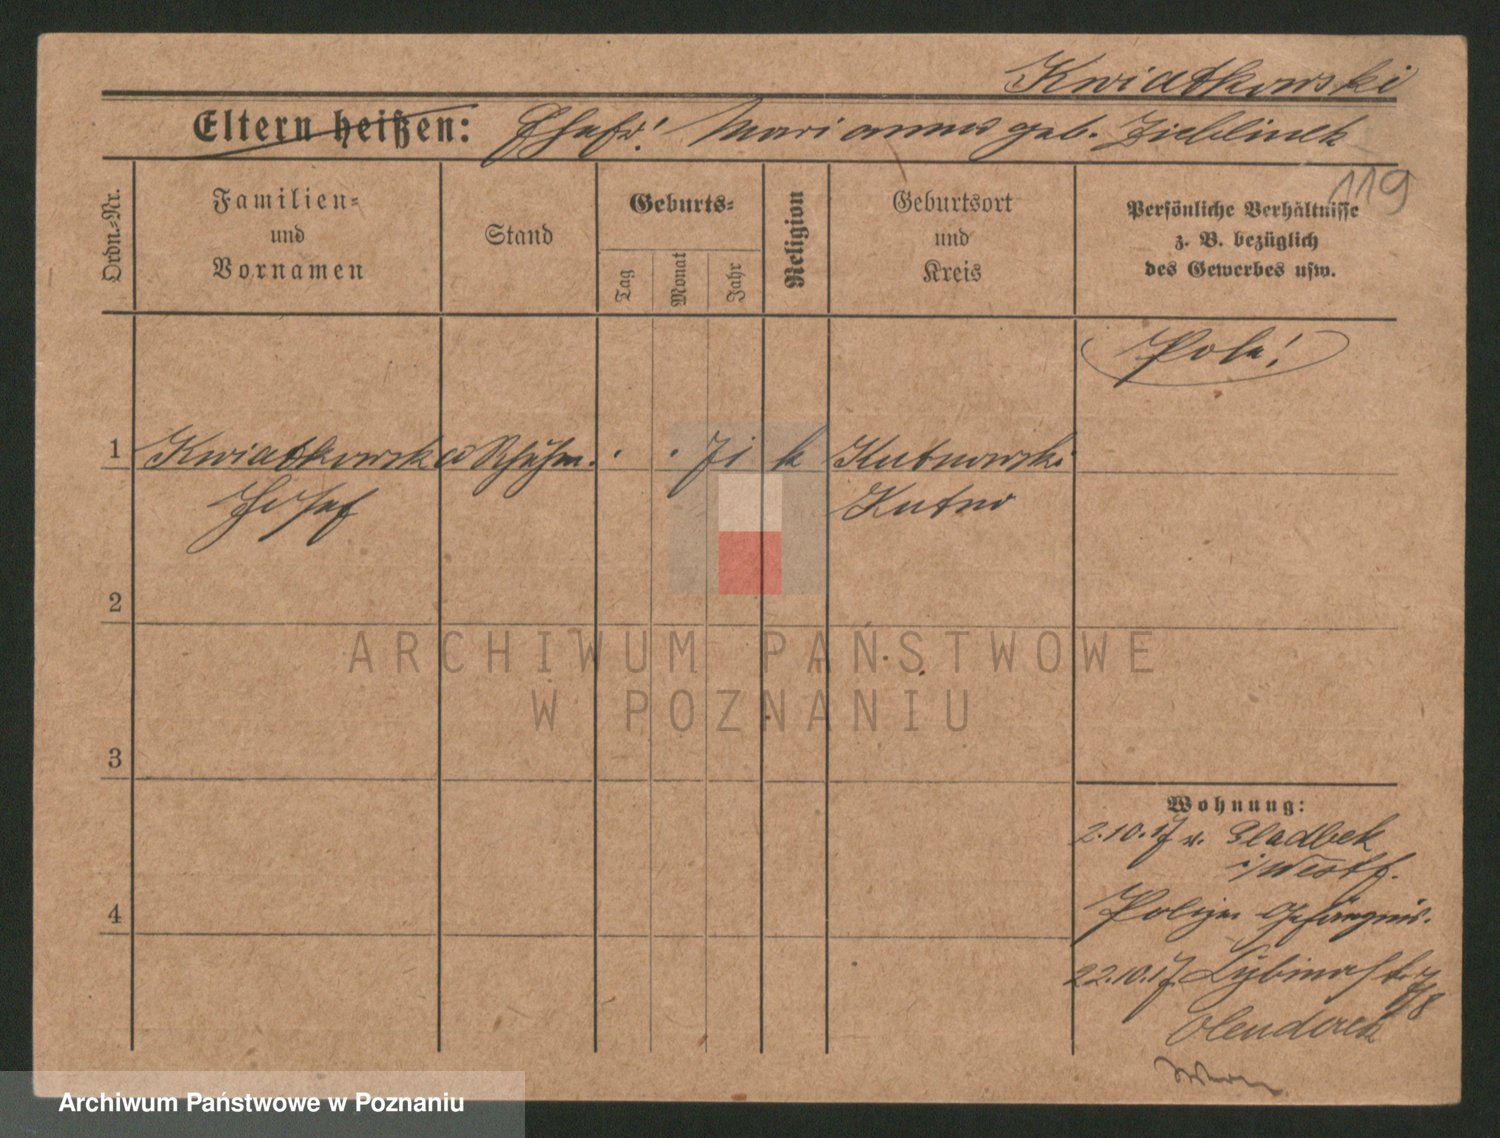 Kwiatkowski
Eltern heißen: Ehefr! Marianna geb. Zieblinek
119
Ordn.-Nr.
Familien-
und
Vornamen
Stand
Geburts-
Tag
Monat
Jahr
Religion
Geburtsort
und
Kreis
Persönliche Verhältnisse
z. B. bezüglich
des Gewerbes usw.
Pole!
1 Kwiatkowski Schuhm. 71 k Kutnowski
Josef Kutno
2
3
4
Wohnung:
2.10.17 v. Gladbek
i/Westf.
Polizei Gefängnis.
22.10.17. Lybinastr. 7/8
Olenderek
ARCHIWUM PAŃSTWOWE
W POZNANIU
Archiwum Państwowe w Poznaniu